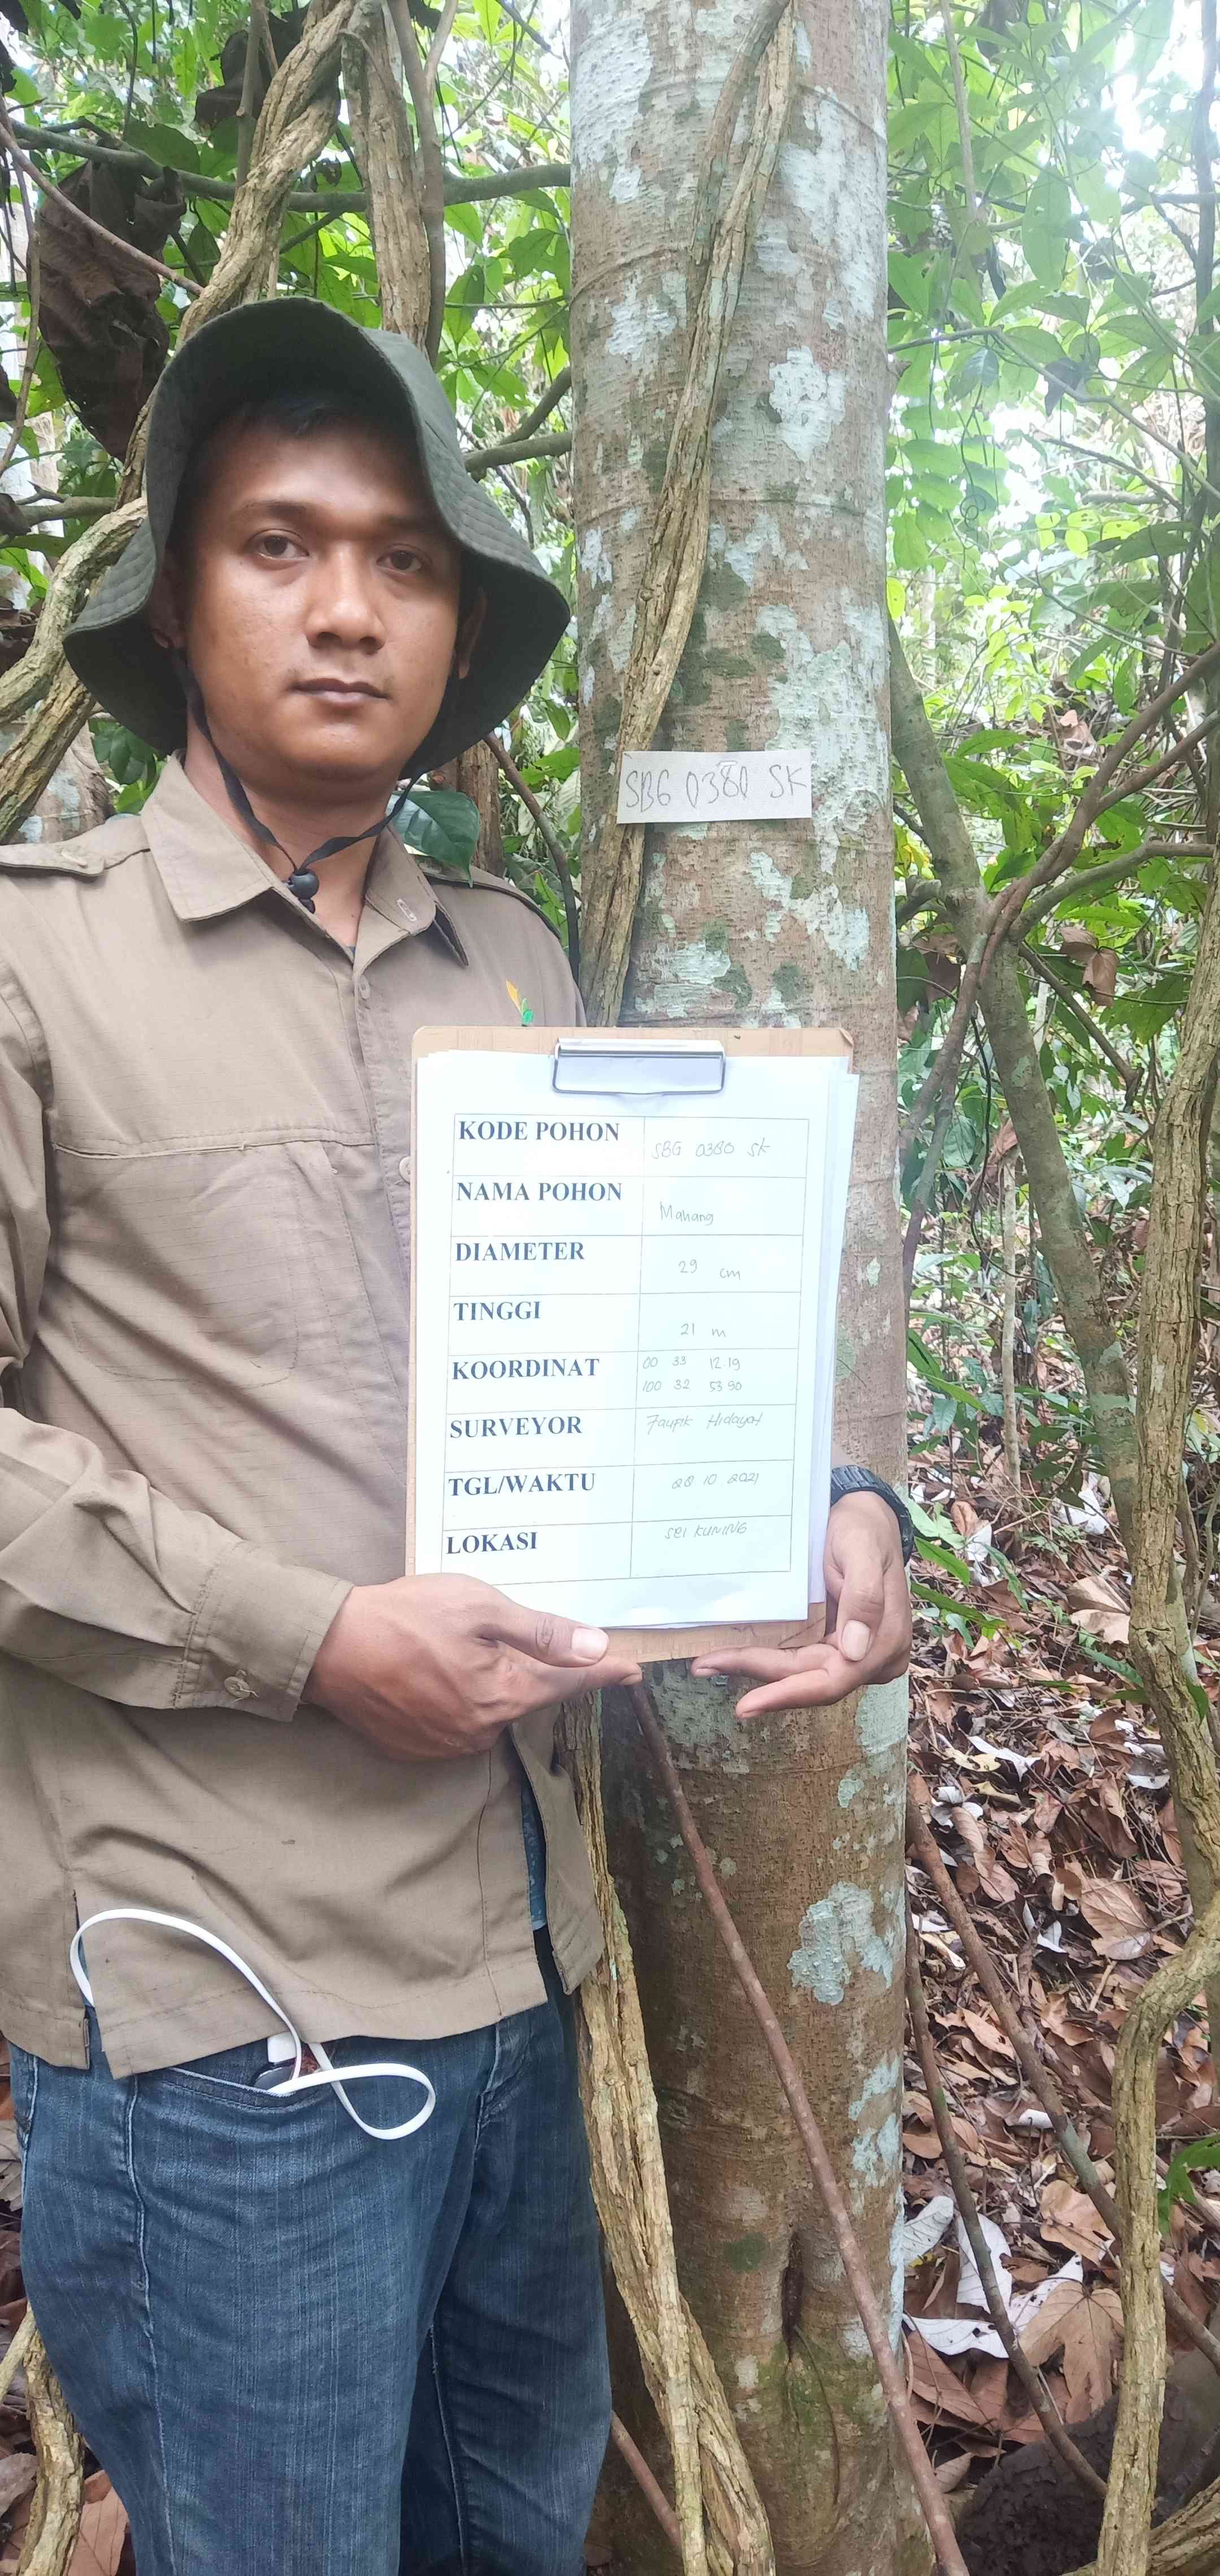 SBG 0380 SK
KODE POHON SBG 0380 SK
NAMA POHON Mahang
DIAMETER 29 cm
TINGGI 21 m
KOORDINAT 00 33 12.19
100 32 53 90
SURVEYOR Taupik Hidayat
TGL/WAKTU 28 10 2021
LOKASI SEI KUNING